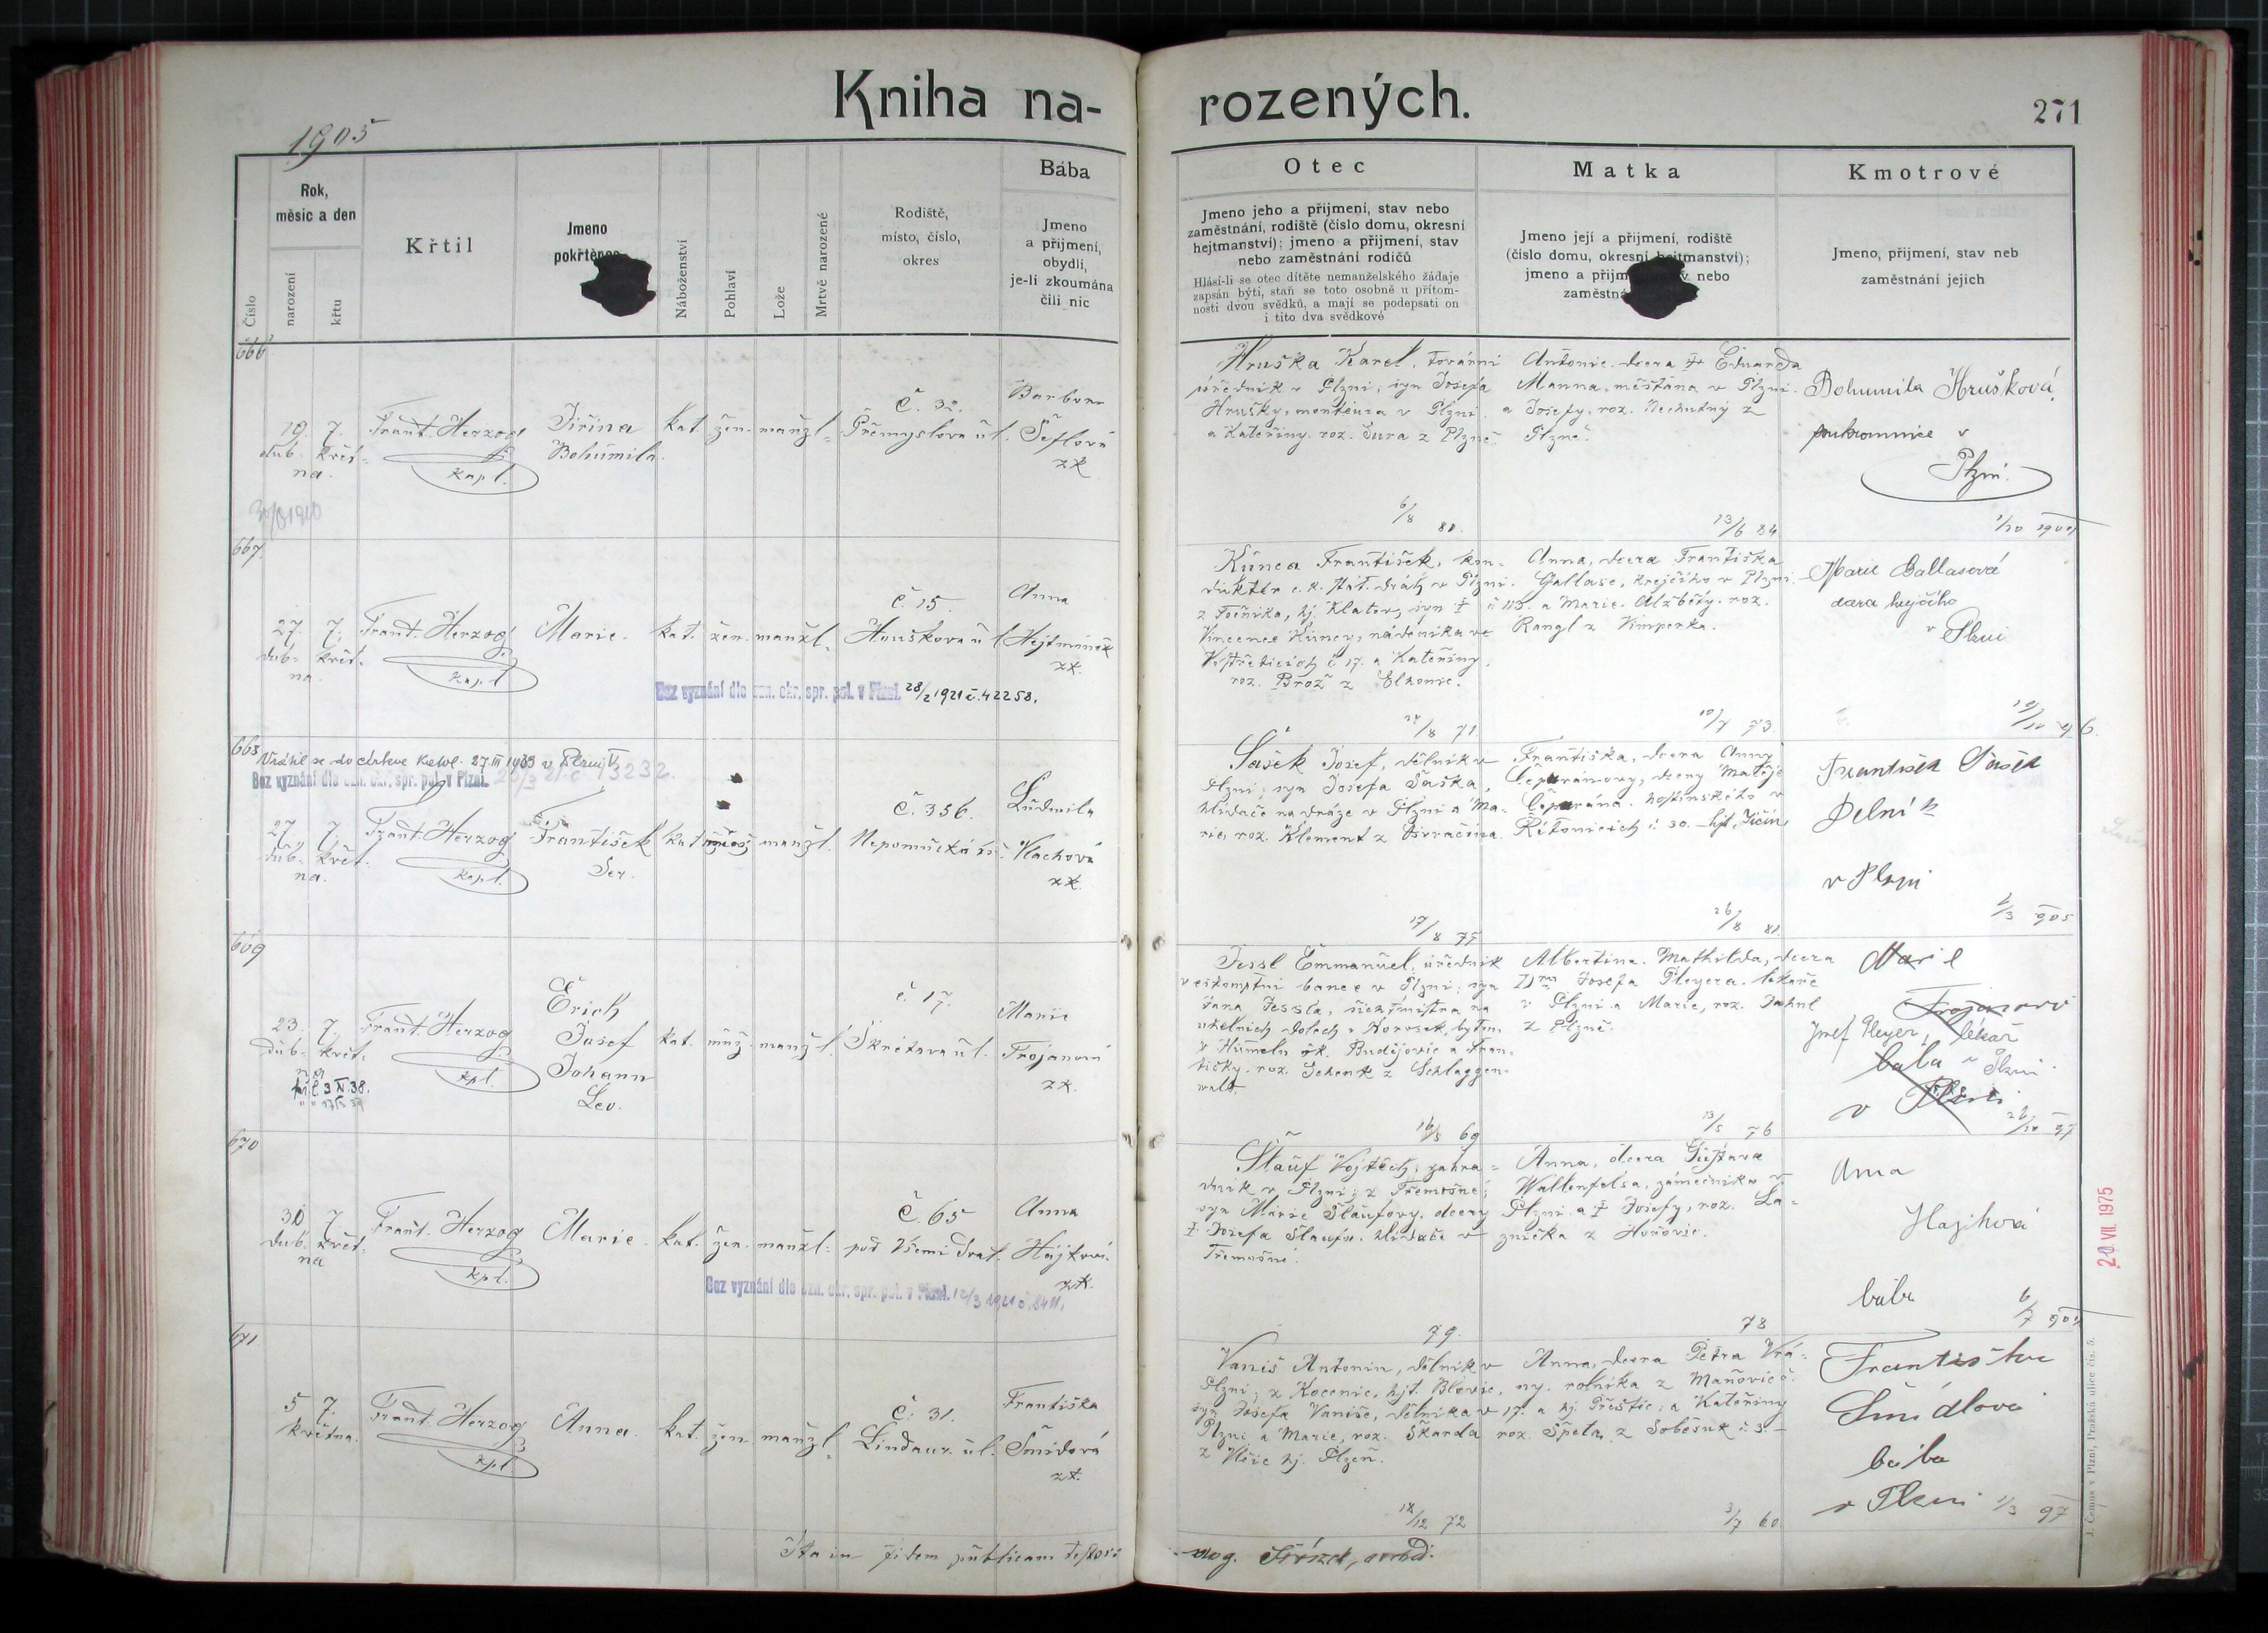 Kniha na-
rozených.
271
1905
Číslo
Rok,
měsíc a den
narození
křtu
Křtil
Jmeno
Náboženství
Pohlaví
Lože
Mrtvě narozené
Rodiště,
místo, číslo,
okres
Bába
Jmeno
a přijmení,
obydlí,
je-li zkoumána
čili nic
Otec
Jmeno jeho a přijmení, stav nebo
zaměstnání, rodiště (číslo domu, okresní
hejtmanství); jmeno a přijmení, stav
nebo zaměstnání rodičů
Hlásí-li se otec dítěte nemanželského žádaje
zapsán býti, staň se toto osobně u přítom-
nosti dvou svědků, a mají se podepsati on
i tito dva svědkové
Matka
Jmeno její a přijmení, rodiště
(číslo domu, okresní hejtmanství);
jmeno a přijm nebo
zaměstn
Kmotrové
Jmeno, přijmení, stav neb
zaměstnání jejich
666
19. 7.
dub- květ-
na.
Frant. Herzog
kapl.
Jiřina
Bohumila.
kat. žen. manžl.
Č. 32.
Přemyslova ul.
Barbora
Šeflová
zk
Hruška Karel, tovární
úředník v Plzni, syn Josefa
Hrušky, montéura v Plzni
a Kateřiny. roz. Šura z Plzně
6/8 80.
Antonie. dcera Eduarda
Manna, měšťana v Plzni.
a Josefy, roz. Nechutný z
Plzně.
13/6 84
Bohumila Hrušková,
soukromnice v
Plzni.
667.
27. 7.
dub- květ.
na
Frant. Herzog
kapl
Marie.
kat. žen. manžl.
Č. 15.
Hruškova ul
Anna
Hejtmánek
zk.
Bez vyznání dle ozn. okr. spr. pol. v Plzni. 28/2 1921 č. 42258.
Kůnca František, kon-
duktér c. k. stát. dráh v Plzni.
z Točníka, hj. Klatov, syn †
Vincence Kůncy, nádeníka ve
č. 17. a Kateřiny,
roz. Brož z
71.
Anna, dcera Františka
Gallase, krejčího v Plzni
č 115. a Marie Alžběty. roz.
Rangl z Vimperka.
73.
Marie Gallasová
dcera krejčího
v Plzni
668
Vrátil se do církve katol. 27.III 1939 v Plzni V
Bez vyznání dle ozn. okr. spr. pol. v Plzni. 13232.
27. 7.
dub. květ.
na.
Frant. Herzog
kapl.
František
Ser.
kat. manžl.
Č. 356.
Nepomucká tř.
Ludmila
Vlachová
zk.
Šašek Josef, dělník v
Plzni; syn Josefa Šaška,
hlídače na dráze v Plzni a Ma-
rie, roz. Klement z
17/8
Františka, dcera Anny
dcery Matěje
hostinského v
č 30. hjt. Jičín
26/8 81.
František Šašek
Dělník
v Plzni
1/3 905
669
23. 7.
dub- květ.
na
Frant. Herzog
kpl.
Erich
Josef
Johann
Leo.
kat. muž. manžl.
č. 17.
Škrétova ul.
Marie
Trojanová
zk.
Jessl Emmanuel, úředník
v eskomptní bance v Plzni; syn
Jana Jessla,
uhelných dolech
Budějovic a Fran-
tišky. roz. Schenk z Schlaggen-
wald.
16/5 69
Albertina. Mathilda, dcera
Dra Josefa Pleyera. lékaře
v Plzni a Marie, roz.
z Plzně.
13/5 76
Marie
Trojanová
Josef Pleyer, lékař
baba v Plzni
v Plzni
670
30 7.
dub- květ.
na
Frant. Herzog
kpl.
Marie.
kat. žen. manžl.
Č. 65
pod Všemi Svat.
Anna
Hájková.
zk.
Bez vyznání dle ozn. okr. spr. pol. v Plzni. 12/3 1921 č. 8411.
Šlauf Vojtěch, zahra-
dník v Plzni; z Třemošné;
syn Marie Šlaufovy. dcery
† Josefa Šlaufa. hlídače v
Třemošné.
79.
Anna, dcera Gustava
Wallenfelsa, zámečníka v
Plzni a † Josefy, roz. La-
znička z Hořovic.
78
Anna
Hajková
bába
20 VII. 1975
671
5 7.
května.
Frant. Herzog
kpl.
Anna.
kat. žen manžl.
Č. 31.
Lindaur. ul.
Františka
Šmídová
zk.
Vaniš Antonín, dělník v
Plzni; z Kocenic, hjt. Blovic,
syn Josefa Vaniše, dělníka v
Plzni a Marie, roz. Škarda
z Vlčic hj. Plzeň.
18/12 72
Anna, dcera Petra Vrá-
ny. rolníka z Maňovic č.
17. a hj. Přeštic; a Kateřiny
roz. Špeta z Soběsuk č. 3.
3/7 60.
Františka
Šmídlová
bába
v Plzni 1/3 97
Ita in fidem publicam testor:
J. Čepus v Plzni, Pražská ulice čís. 5.